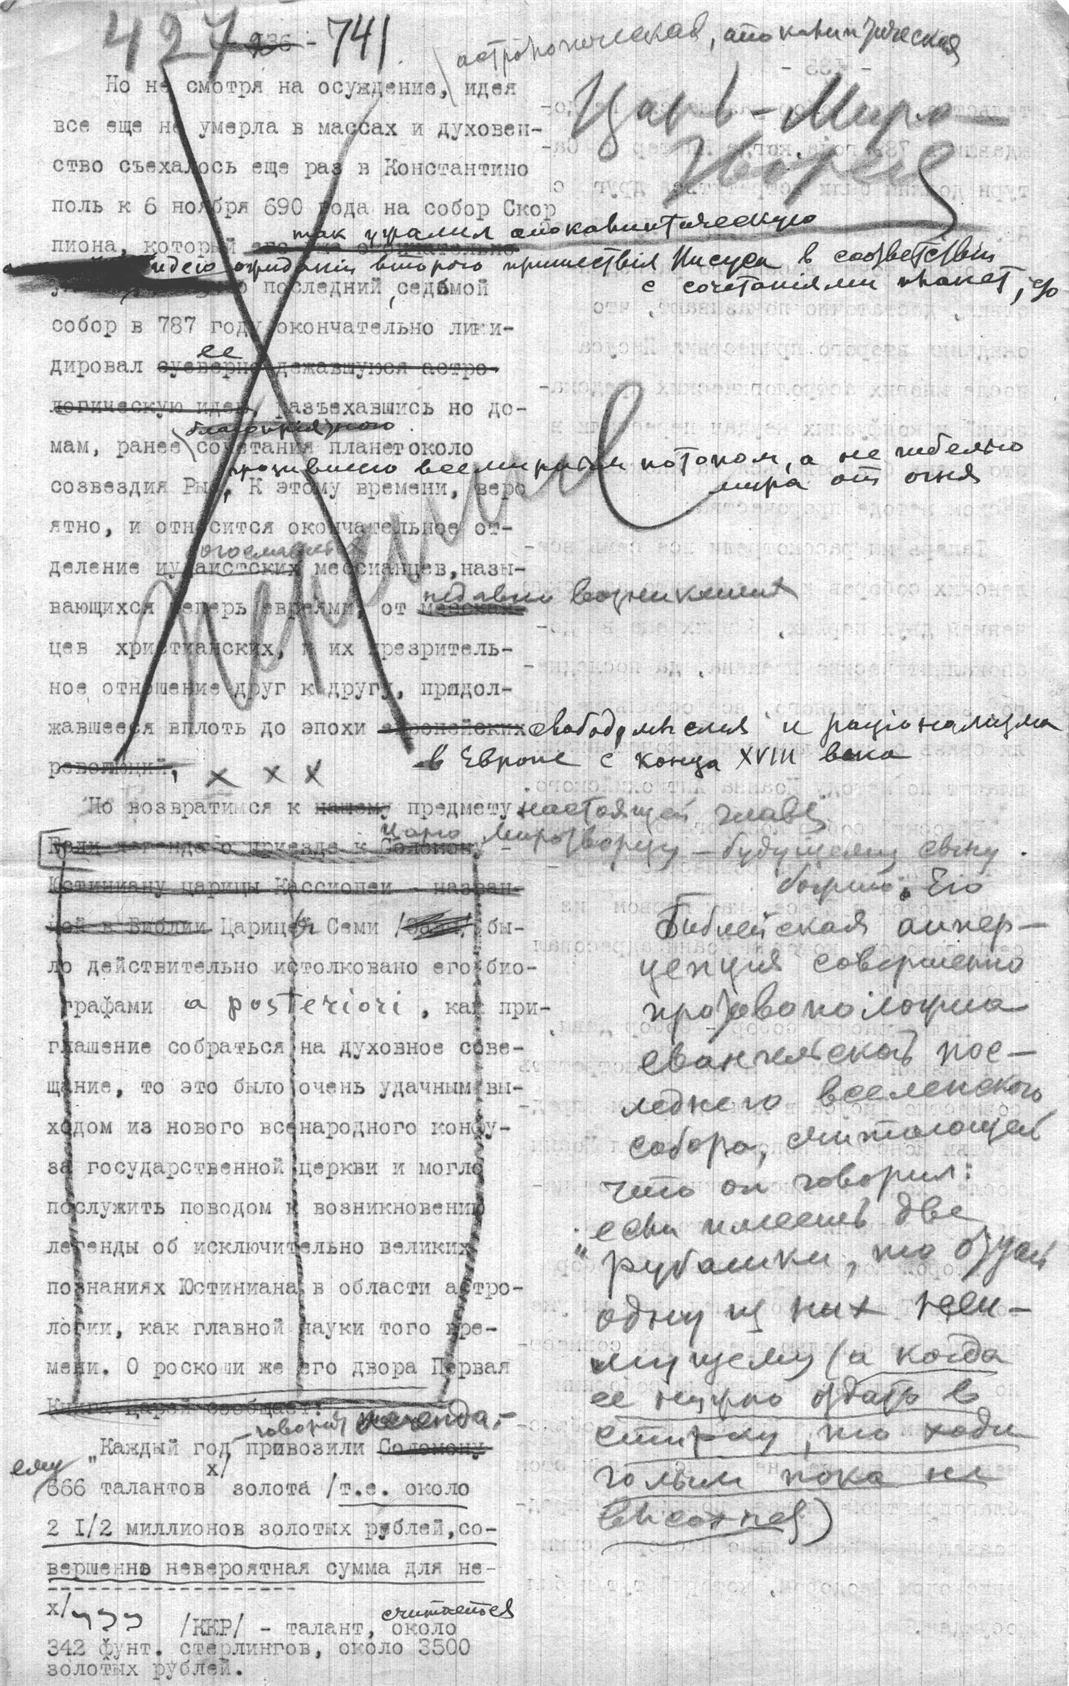 427 ~~936~~ - 741
астрономическая, апокалиптическая
Но не смотря на осуждение, идея
Царь-Миро-
творец
все еще не умерла в массах и духовен-
ство съехалось еще раз в Константино
поль к 6 ноября 690 года на собор Скор
так указал апокалиптическую
пиона, который
идею ожиданія второго пришествія Иисуса в соответствіи
с сочетаніями планет,
последний, седьмой
собор в 787 году окончательно ликви-
ее
дировал суеверно державшуюся астро-
логическую идею, разъехавшись по до-
мам, ранее сочетания планет около
грозившаго всемирным потопом, а не гибелью
мира от огня
созвездия Рыб, К этому времени, веро
ятно, и относится окончательное от-
деление иудаистских мессианцев, назы-
недавно возникших
вающихся теперь евреями, от мессиан-
цев христианских, и их презритель-
ное отношение друг к другу, продол-
жавшееся вплоть до эпохи европейских свободомыслия и раціонализма
в Европе с конца XVIII века
революций,
х х х
Но возвратимся к нашему предмету настоящей главы
царю Миротворцу – будущему сыну
божию. Его
Если легенда о приезде к Соломону -
Юстиниану царицы Кассиопеи - назван-
ной в Библии Царицей Семи бы-
ло действительно истолковано его био-
графами a posteriori, как при-
глашение собраться на духовное сове-
щание, то это было очень удачным вы-
ходом из нового всенародного конфу-
за государственной церкви и могло
послужить поводом к возникновению
легенды об исключительно великих
познаниях Юстиниана в области астро-
логии, как главной науки того вре-
мени. О роскоши же его двора Первая
Книга Царей сообщает:
библейская аппер-
цепция совершенно
противоположна
евангельской пос-
леднего вселенского
собора, считающей
что он говорил:
"если имеешь две
рубашки, то отдай
одну из них неи-
мущему (а когда
ее нужно отдать в
стирку, то ходи
голым пока не
высохнет)
- говорит легенда. -
"Каждый год привозили Соломону
ему
х/
666 талантов золота /т.е. около
2 1/2 миллионов золотых рублей, со-
вершенно невероятная сумма для не-
х/ /ККР/ - талант, считается около
342 фунт. стерлингов, около 3500
золотых рублей.